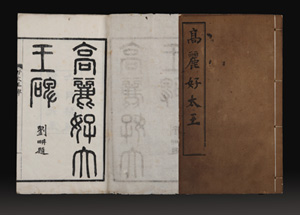 高麗好太
王碑
劉㫤題
高麗好太王